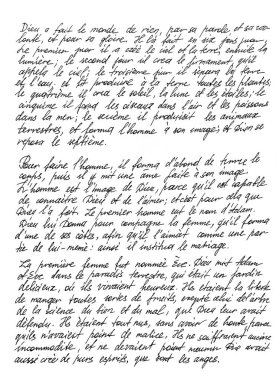 Dieu a fait le monde de rien, par sa parole et sa vo-
lonté, et pour sa gloire. Il l'a fait en six jours.
Le premier jour il a créé le ciel et la terre, ensuite la
lumière; le second jour il créa le firmament, qu'il
appela le ciel; le troisième jour il sépara la terre
et l'eau, et fit produire à la terre toutes les plantes;
le quatrième il créa le soleil, la lune et les étoiles; le
cinquième il fond les oiseaux dans l'air et les poissons
dans la mer; le sixième il produisit les animaux
terrestres, et forma l'homme à son image; et Dieu se
reposa le septième.
Pour faire l'homme, il forma d'abord de terre le
corps, puis il y mit une âme faite à son image.
L'homme est l'image de Dieu, parce qu'il est capable
de connaître Dieu et de l'aimer; et c'est pour cela que
Dieu l'a fait. Le premier homme eut le nom d'Adam.
Dieu lui donna pour compagne la femme, qu'il forma
d'une de ses côtes, afin qu'il l'aimât comme une par-
tie de lui-même: ainsi il institua le mariage.
La première femme fut nommée Eve. Dieu mit Adam
et Eve dans le paradis terrestre, qui était un jardin
délicieux, où ils vivaient heureux. Ils étaient la liberté
de manger toutes sortes de fruits, excepté celui de l'arbre
de la science du bien et du mal, que Dieu leur avait
défendu. Ils étaient tout nus, sans avoir de honte, parce
qu'ils n'avaient point de malice. Ils ne souffraient aucune
incommodité, et ne devaient point mourir. Dieu avait
aussi créé de purs esprits, que sont les anges.